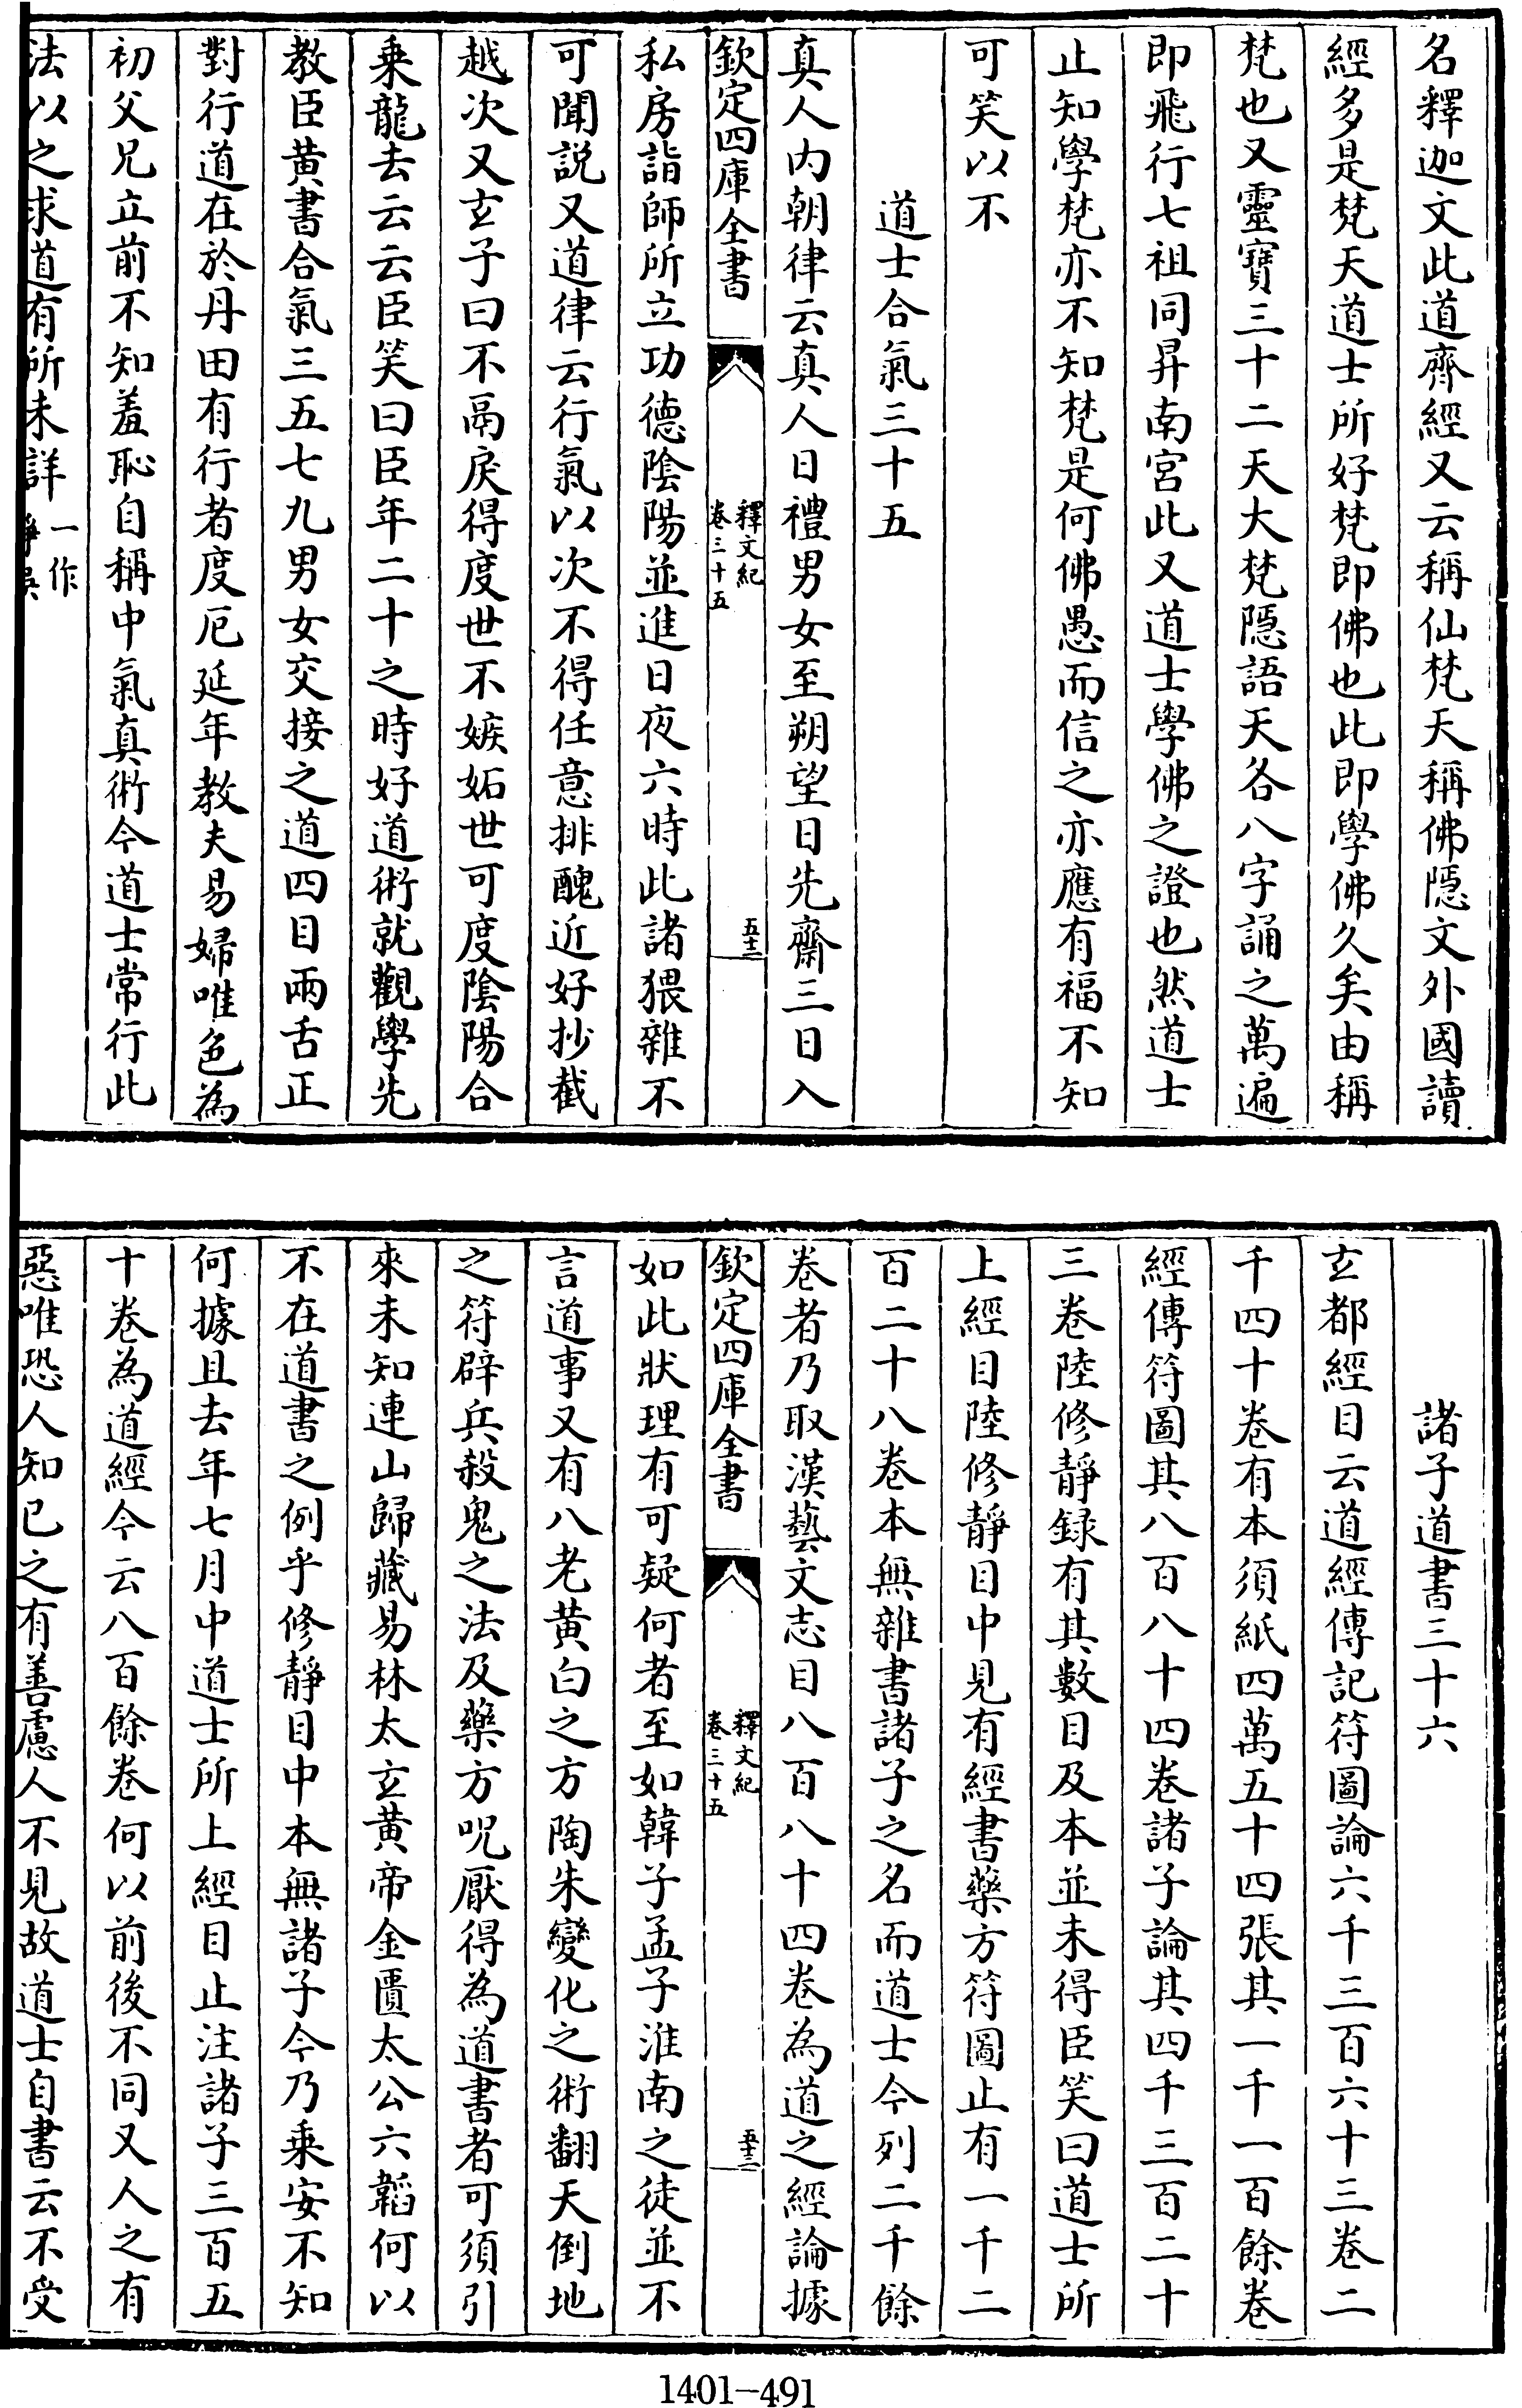 名釋迦文此道齊經又云稱仙梵天稱佛隱文外國讀
經多是梵天道士所好梵即佛也此即學佛久矣由稱
梵也又靈寶三十二天大梵隱語天各八字誦之萬遍
即飛行七祖同昇南宮此又道士學佛之證也然道士
止知學梵亦不知梵是何佛愚而信之亦應有福不知
可笑以不
道士合氣三十五
真人内朝律云真人日禮男女至朔望日先齋三日入
欽定四庫全書
釋文紀
卷三十五
五十二
私房詣師所立功德陰陽並進日夜六時此諸猥雜不
可聞説又道律云行氣以次不得任意排醜近好抄截
越次又玄子曰不鬲戾得度世不嫉妬世可度陰陽合
乗龍去云云臣笑曰臣年二十之時好道術就觀學先
教臣黄書合氣三五七九男女交接之道四目兩舌正
對行道在於丹田有行者度厄延年教夫易婦唯色為
初父兄立前不知羞恥自稱中氣真術今道士常行此
法以之求道有所未詳
一作
諍吳
諸子道書三十六
玄都經目云道經傳記符圖論六千三百六十三卷二
千四十卷有本須紙四萬五十四張其一千一百餘卷
經傳符圖其八百八十四卷諸子論其四千三百二十
三卷陸修靜録有其數目及本並未得臣笑曰道士所
上經目陸修靜目中見有經書藥方符圖止有一千二
百二十八卷本無雜書諸子之名而道士今列二千餘
卷者乃取漢藝文志目八百八十四卷為道之經論據
欽定四庫全書
釋文紀
卷三十五
五十三
如此狀理有可疑何者至如韓子孟子淮南之徒並不
言道事又有八老黄白之方陶朱變化之術翻天倒地
之符辟兵殺鬼之法及藥方呪厭得為道書者可須引
來未知連山歸藏易林太玄黄帝金匱太公六韜何以
不在道書之例乎修靜目中本無諸子今乃乗安不知
何據且去年七月中道士所上經目止注諸子三百五
十卷為道經今云八百餘卷何以前後不同又人之有
惡唯恐人知已之有善慮人不見故道士自書云不受
1401-491